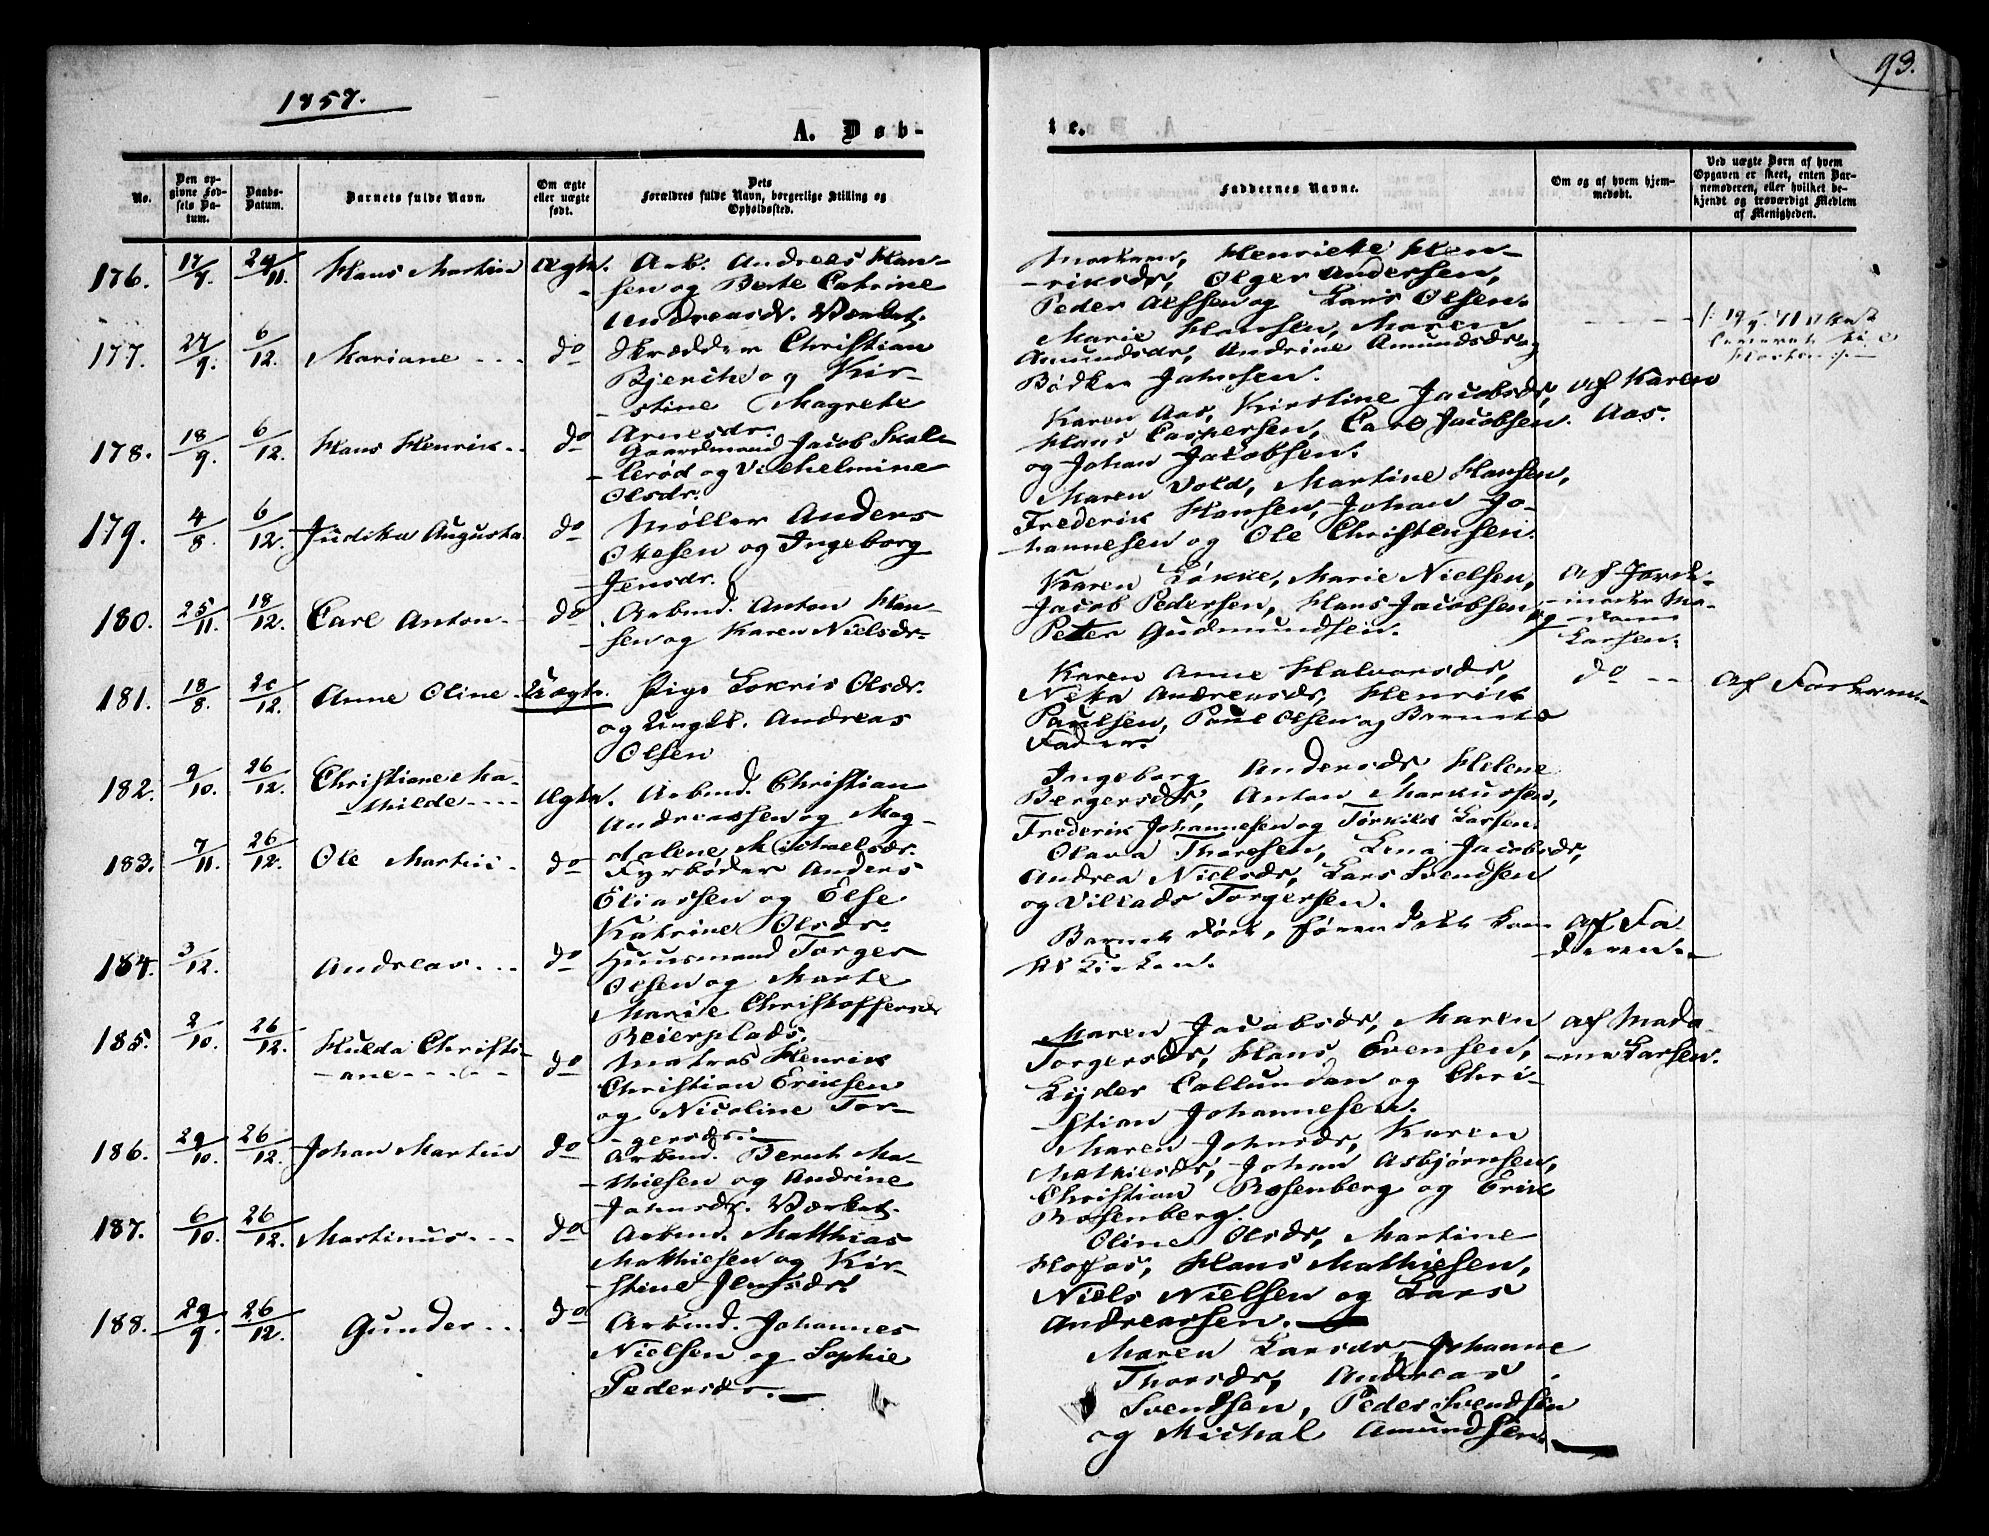 1857.
93.
A. Døb-
te.
No.
Den op-
givne Fød-
sels Da-
tum.
Daabs-
Datum.
Barnets fulde Navn.
Om ægte
eller uægte
født.
Dets
Forældres fulde Navn, borgerlige Stilling og
Opholdssted.
Faddernes Navne.
Om og af hvem hjem-
medøbt.
Ved uægte Børn af hvem
Opgaven er skeet, enten Bar-
nemoderen, eller hvilket be-
kjendt og troværdigt Medlem
af Menigheden.
176. 17/9. 29/11. Hans Martin Ægte.
Arb. Andreas Han-
sen og Berte Catrine
Andreasdr. Værket.
Henriette Hen-
riksdr, Olger Andersen,
Peder Alfsen og Lars Olsen.
177. 27/9. 6/12. Mariane - - - do
Skrædder Christian
Bjerche og Kir-
stine Magrete
Arnesdr.
Marie Hansen, Maren
Amundsdr, Andrine Amundsdr og
Bødker Johnsen.
178. 18/9. 6/12. Hans Henrik - - do
Gaardmand Jacob Skal-
lerød og Vilhelmine
Olsdr.
Karen Aas, Kirstine Jacobsdr,
Hans Caspersen, Carl Jacobsen
og Johan Jacobsen.
af Karen
Aas.
179. 4/8. 6/12. Judika Augusta do
Møller Anders
Olesen og Ingeborg
Jensdr.
Maren Vold, Martine Hansen,
Frederik Hansen, Johan Jo-
hannesen og Ole Christensen.
180. 25/11. 18/12. Carl Anton - do
Arbmd. Anton Han-
sen og Karen Nielsdr-
Karen Løkke, Marie Nielsen,
Jacob Pedersen, Hans Jacobsen, og
Peter Gudmundsen.
af Jord-
moder Ma-
dame
Larsen.
181. 18/8. 20/12. Anne Oline - Uægte.
Pige Lokris Olsdr.
og Ungk. Andreas
Olsen
Karen Anne Halvorsdr,
Neka Andreasdr, Henrik
Paulsen, Poul Olsen og Barnets
Fader.
do - -
af Faderen -
182. 9/10. 26/12. Christiane Ma-
thilde - - - - Ægte.
Arbmd. Christian
Andreassen og Mag-
dalene Michaelsdr.
Ingeborg Andersdr, Helene
Bergersdr, Anton Markussen,
Frederik Johannesen og Torkild Larsen.
183. 7/11. 26/12. Ole Martin - do
Fyrbøder Anders
Eliassen og Else
Katrine Olsdr.
Olava Thoresen, Lena Jacobsdr,
Andrea Nielsdr, Lars Svendsen
og Villads Torgersen.
184. 3/12. Andreas - - - do
Huusmand Torger
Olsen og Marte
Marie Christoffersdr
Beierplads.
Barnet døde, førend det kom
til Kirken.
af Fa-
deren. -
185. 2/10. 26/12. Hulda Christi-
ane - - - - - do
Matros Henrik
Christian Eriksen
og Nicoline Tor-
gersdr.
Maren Jacobsdr, Maren
Torgersdr, Hans Evensen,
Lyder Callundan og Chri-
stian Johannesen.
af Mada-
me Larsen.
186. 29/10. 26/12. Johan Martin do
Arbmd. Bernt Ma-
thiesen og Andrine
Johnsdr. Værket.
Maren Johnsdr, Karen
Mathiesdr, Johan Asbjørnsen,
Christian Rosenberg og Erik
Rosenberg.
187. 6/10. 26/12. Martinus - - - do
Arbmd. Matthias
Matthiesen og Kir-
stine Jensdr.
Oline Olsdr, Martine
Hofos, Hans Mathiesen,
Niels Nielsen og Lars
Andreassen.
188. 29/9. 26/12. Gunder - - - do
Arbmd. Johannes
Nielsen og Sophie
Pedersdr.
Maren Larsdr, Johanne
Thorsdr, Andreas
Svendsen, Peder Svendsen
og Michal Amundsen.